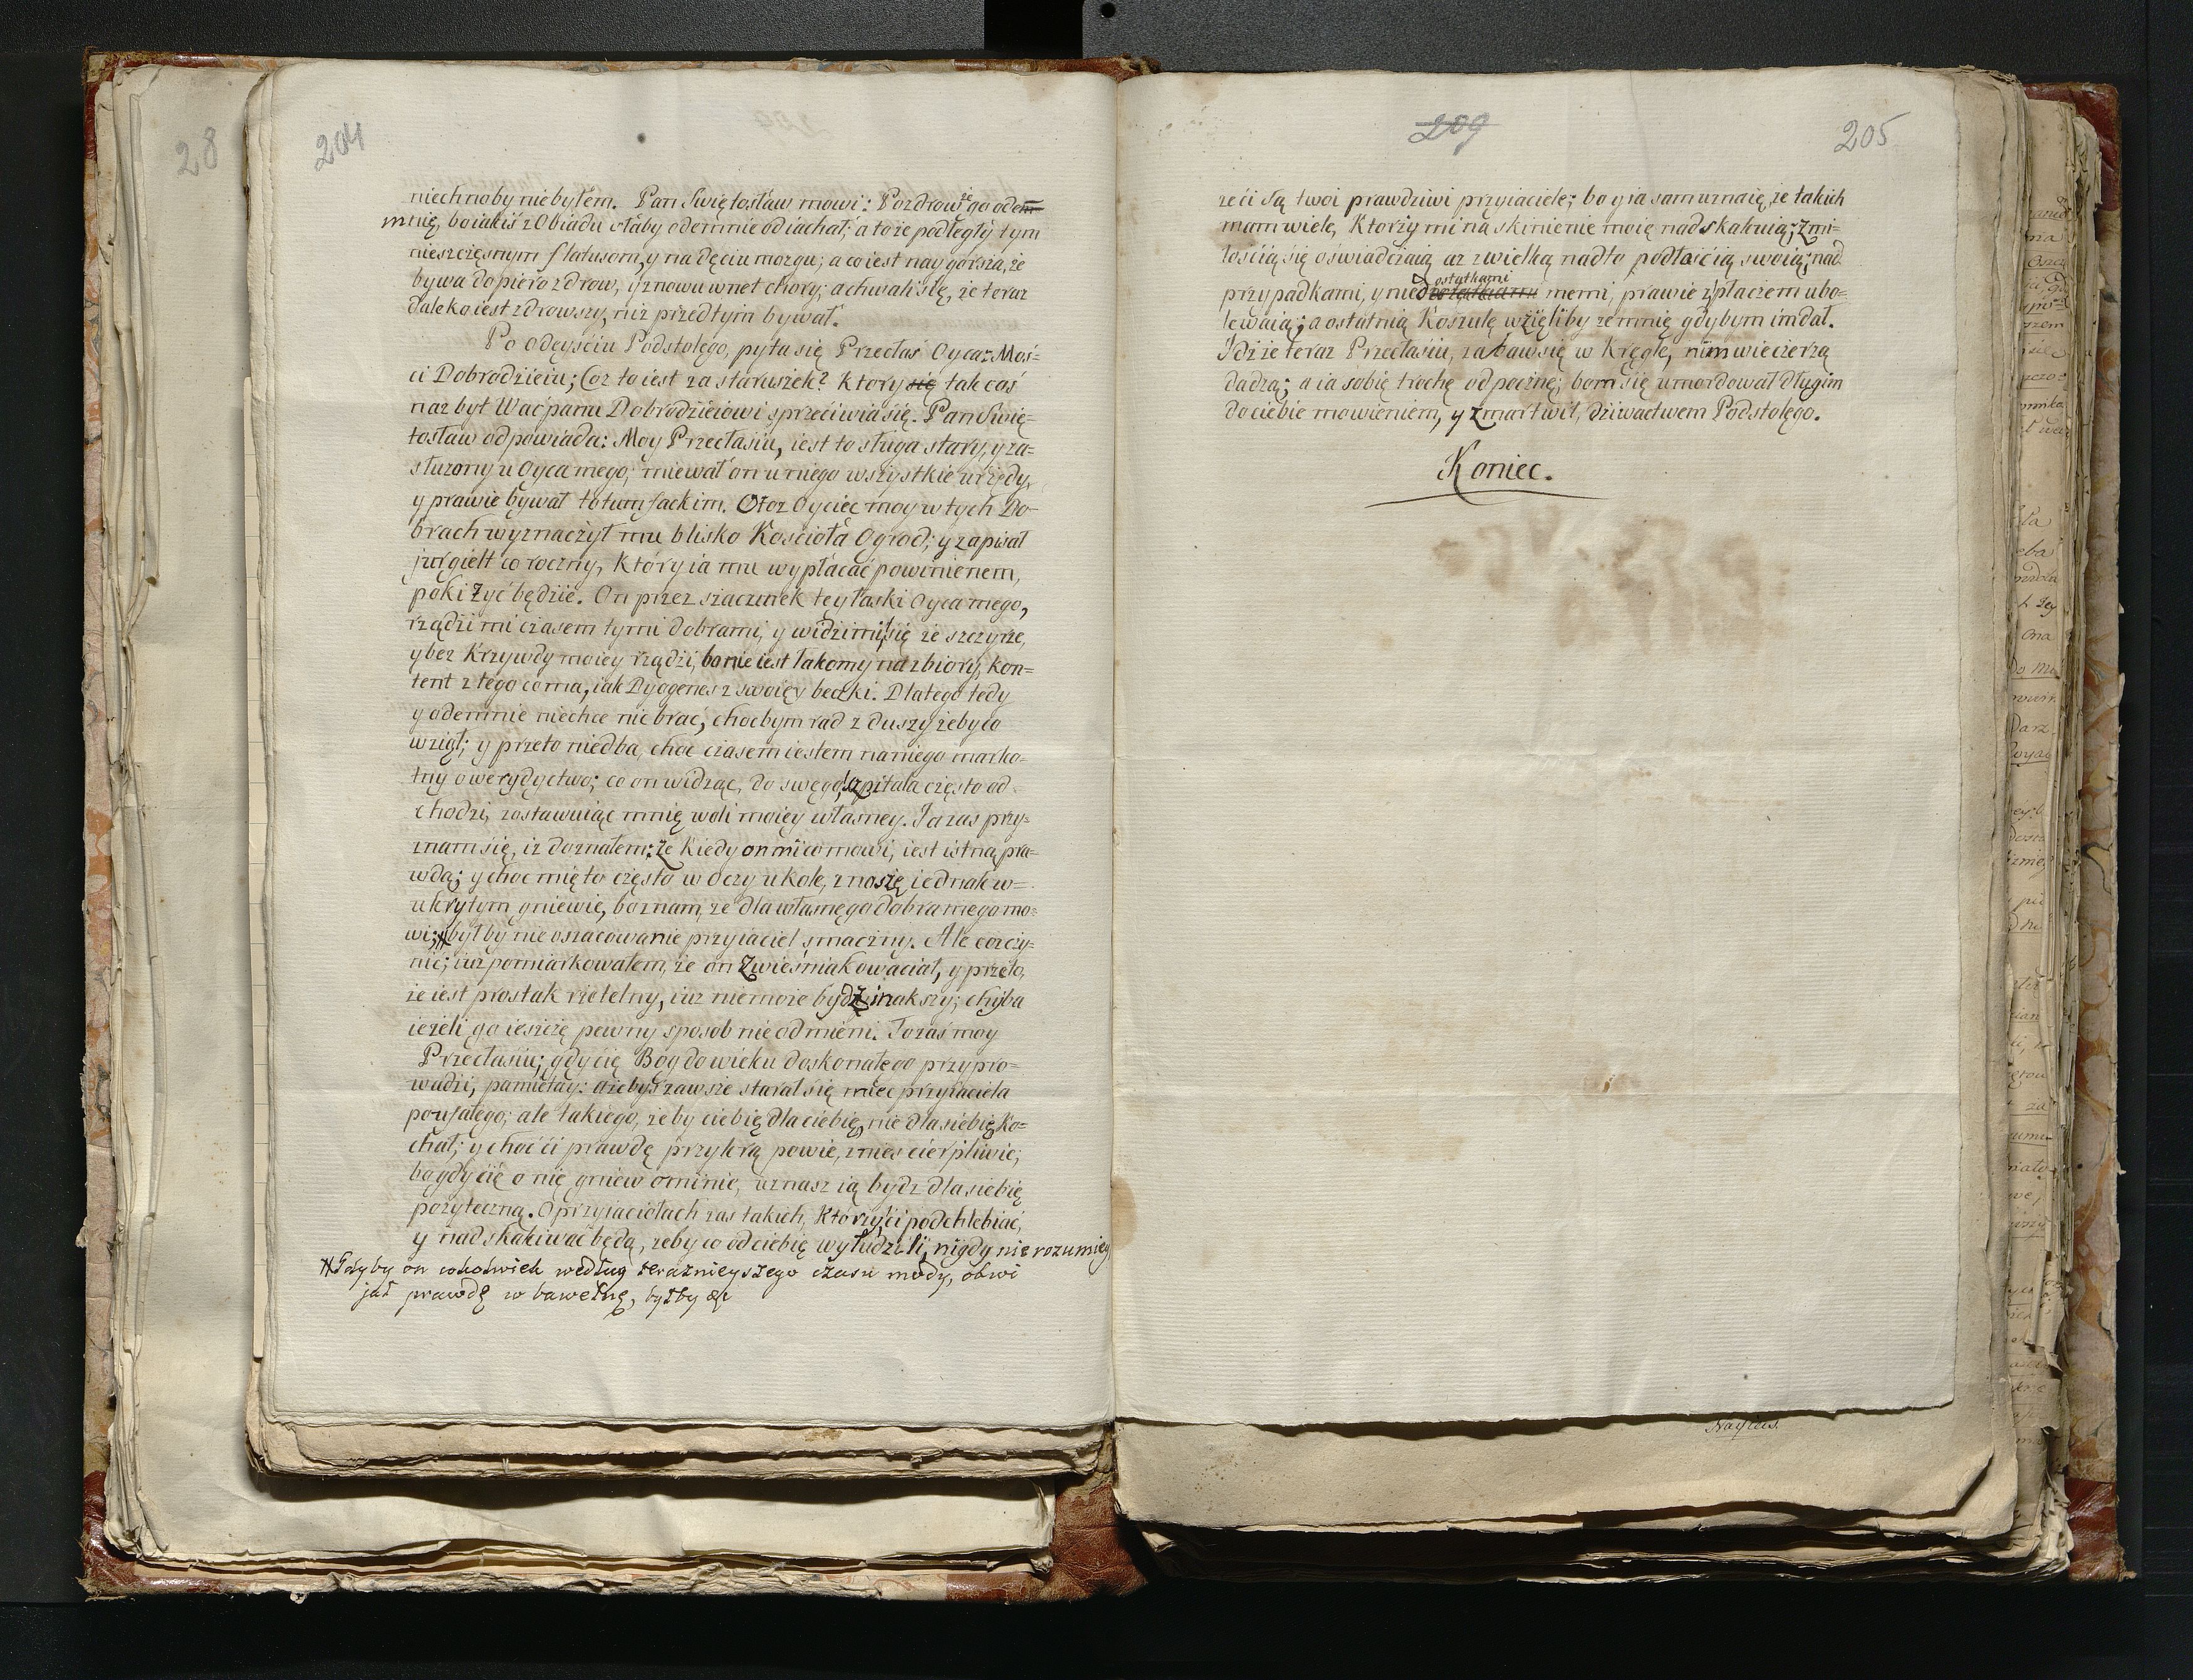 28
204
niechnoby niebyłem. Pan Swiętosław mowi: Pozdrowże go odem
mnię, bo iakiś z Obiadu słaby odemnie odiachał; a to że podległy tym
nieszczęsnym flatusom, y na dęciu mozgu; a co iest naygorsza, że
bywa dopiero zdrow, y znowu wnet chory; a chwali się, że teraz
daleko iest zdrowszy, niż przedtym bywał.
Po odeyściu Podstolego, pyta się Przecłaś Oyca: Moś-
ci Dobrodzieiu; Coż to iest za staruszek? Ktory się tak coś
nazbyt Waćpanu Dobrodzieiowi sprzeciwia się. Pan Swię-
tosław odpowiada: Moy Przecłasiu, iest to sługa stary, y za-
służony u Oyca mego; miewał on u niego wszystkie urzędy,
y prawie bywał totumfackim. Otoż Oyciec moy w tych Do-
brach wyznaczył mu blisko Kościoła Ogrod; y zapisał
jurgielt coroczny, Ktory ia mu wypłacać powinienem,
poki żyć będzie. On przez szacunek tey łaski Oyca mego,
rządzi mi czasem tymi dobrami, y widzi mi się że szczyrze,
y bez Krzywdy moiey rządzi, bo nie iest łakomy na zbiory, kon-
tent z tego co ma, iak Dyogenes z swoiey beczki. Dlatego tedy
y odemnie niechce nic brać, chocbym rad z duszy żeby co
wziął; y przeto niedba, choc czasem iestem na niego marko-
tny o werydyctwo; co on widząc, do swego szpitala często od-
chodzi, zostawuiąc mnię woli moiey własney. Ia zas przy-
znam się, iż doznałem: że Kiedy on mi co mowi, iest istną pra-
wdą; y choc mię to często w oczy ukole, znoszę iednak w-
ukrytym gniewie, bo znam, że dla własnego dobra mego mo-
wi; # byłby nie oszacowanie przyiaciel smaczny. Ale coż czy-
nić; iuż pomiarkowałem, że on zwieśniakowaciał, y przeto,
że iest prostak rzetelny, iuż niemoże bydź inakszy; chyba
ieżeli go ieszcze pewny sposob nie odmieni. Ty zaś moy
Przecłasiu; gdy cię Bog do wieku doskonałego przypro-
wadzi, pamiętay: ażebyś zawsze starał się miec przyiaciela
poufałego; ale takiego, żeby ciebię dla ciebię, nie dla siebię Ko-
chał; y choć ci prawdę przykrą powie, znieś cierpliwie;
bo gdy cię o nię gniew ominie, uznasz ią bydz dla siebię
pożyteczną. O przyiaciołach zas takich, Ktorzy ci podchlebiać,
y nadskakiwać będą, żeby co od ciebię wyłudzili, nigdy nie rozumiey
# Gdyby on cokolwiek według teraznieyszego czasu mody, obwi
jał prawdę w bawełnę, byłby
209
205
że ci są twoi prawdziwi przyiaciele; bo y ia sam uznaię, że takich
mam wiele, Ktorzy mi na skinienie moie nadskakuią; z mi-
łością się oświadczaią aż z wielką nadto podłością swoią; nad
przypadkami, y nied ostatkami memi, prawie z płaczem ubo-
lewaią; a ostatnią Koszulę wzięliby ze mnię gdybym im dał.
Idźże teraz Przecłasiu, zabaw się w Kręgle, nim wieczerzą
dadzą; a ia sobię trochę odpocznę; bom się umordował długim
do ciebie mowieniem, y zmartwił, dziwactwem Podstolego.
Koniec.